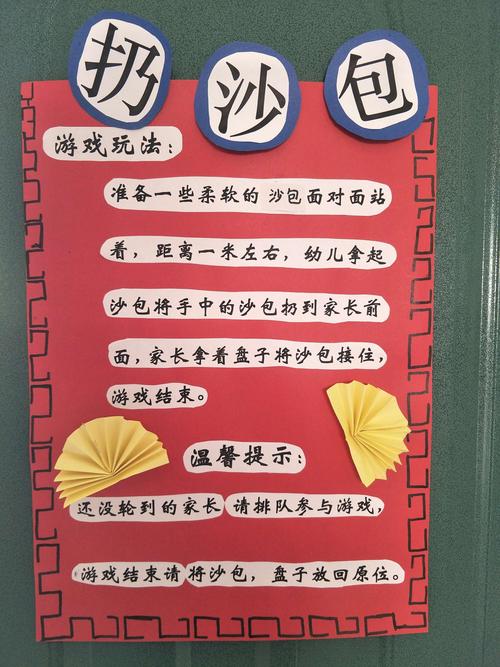 扔沙包
游戏玩法：
准备一些柔软的 沙包面对面站
着，距离一米左右，幼儿拿起
沙包将手中的沙包扔到家长前
面，家长拿着盘子将沙包接住，
游戏结束。
温馨提示：
还没轮到的家长 请排队参与游戏，
游戏结束请 将沙包，盘子放回原位。